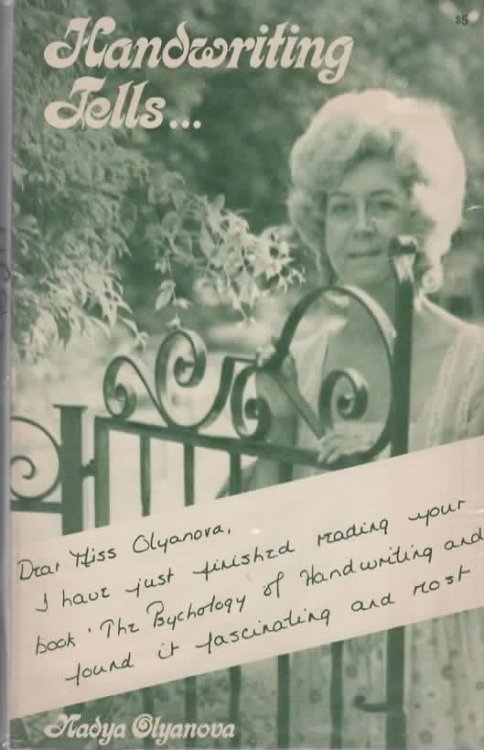 $5
Handwriting
Tells...
Dear Miss Olyanova,
I have just finished reading your
book 'The Psychology of Handwriting and
found it fascinating and most
Nadya Olyanova